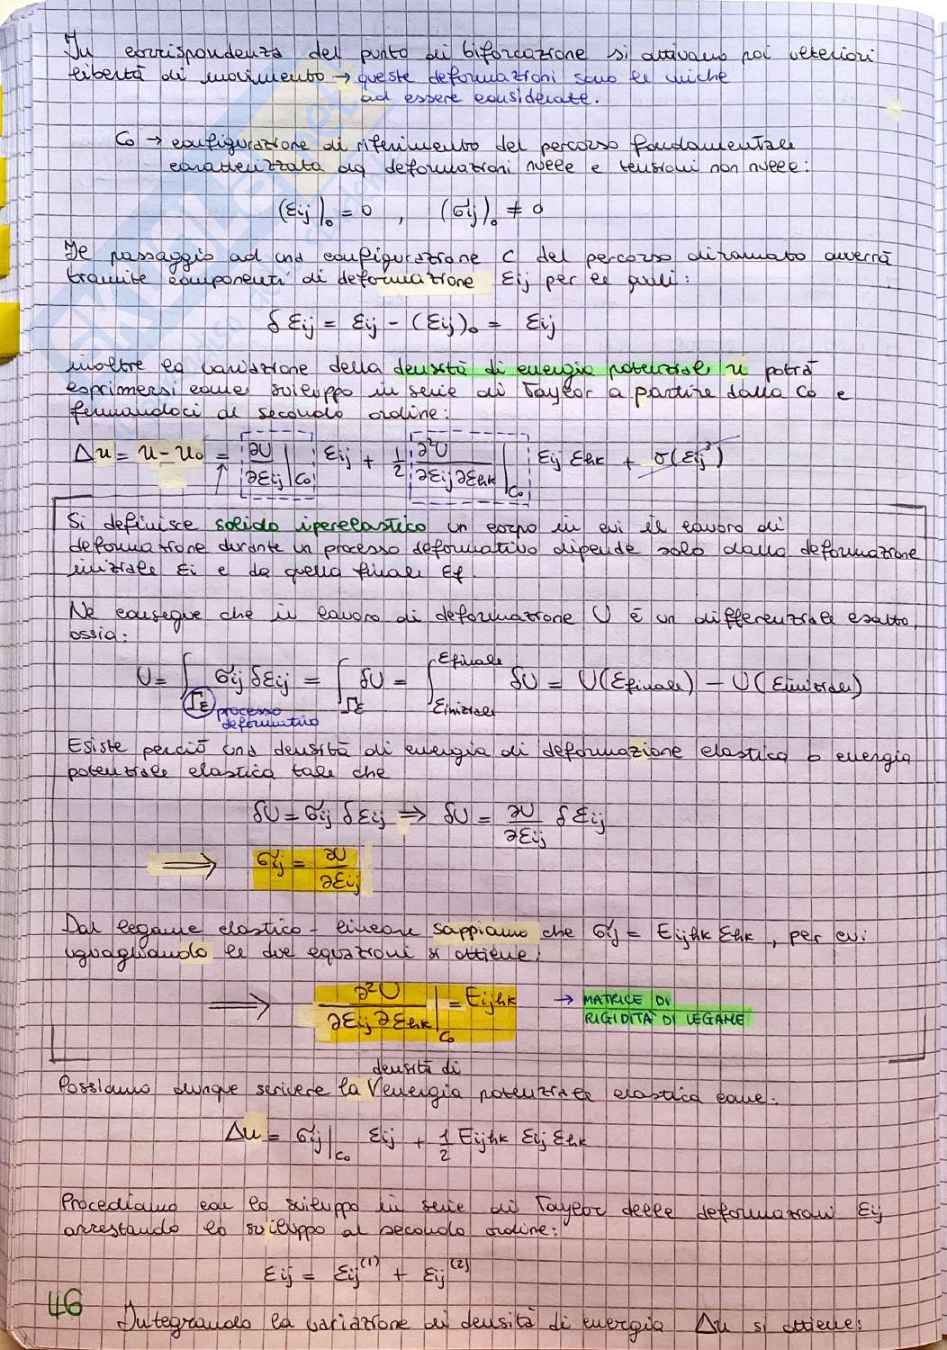 In corrispondenza del punto di biforcazione si attivano poi ulteriori
libertà di movimento → queste deformazioni sono le uniche
ad essere considerate.
C₀ → configurazione di riferimento del percorso fondamentale
caratterizzata da deformazioni nulle e tensioni non nulle:
(εij)₀ = 0 , (σij)₀ ≠ 0
Il passaggio ad una configurazione C del percorso diramato avverrà
tramite componenti di deformazione εij per le quali:
δεij = εij - (εij)₀ = εij
inoltre la variazione della densità di energia potenziale u potrà
esprimersi come sviluppo in serie di Taylor a partire dalla C₀ e
fermandoci al secondo ordine:
Δu = u - u₀ = ∂U/∂εij |C₀ εij + 1/2 ∂²U/∂εij∂εhk |C₀ εij εhk + σ(εij³)
Si definisce solido iperelastico un corpo in cui il lavoro di
deformazione durante un processo deformativo dipende solo dalla deformazione
iniziale εi e da quella finale εf.
Ne consegue che il lavoro di deformazione U è un differenziale esatto,
ossia:
U = ∫Γε σij δεij = ∫Γε δU = ∫εiniziale^εfinale δU = U(εfinale) - U(εiniziale)
processo
deformativo
Esiste perciò una densità di energia di deformazione elastica o energia
potenziale elastica tale che
δU = σij δεij ⇒ δU = ∂U/∂εij δεij
⟹ σij = ∂U/∂εij
Dal legame elastico-lineare sappiamo che σij = Eijhk εhk , per cui
uguagliando le due equazioni si ottiene:
⟹ ∂²U/∂εij∂εhk |C₀ = Eijhk → MATRICE DI
RIGIDITÀ DI LEGAME
densità di
Possiamo dunque scrivere la V energia potenziale elastica come:
Δu = σij|C₀ εij + 1/2 Eijhk εij εhk
Procediamo con lo sviluppo in serie di Taylor delle deformazioni εij
arrestando lo sviluppo al secondo ordine:
εij = εij⁽¹⁾ + εij⁽²⁾
46
Integrando la variazione di densità di energia Δu si ottiene: